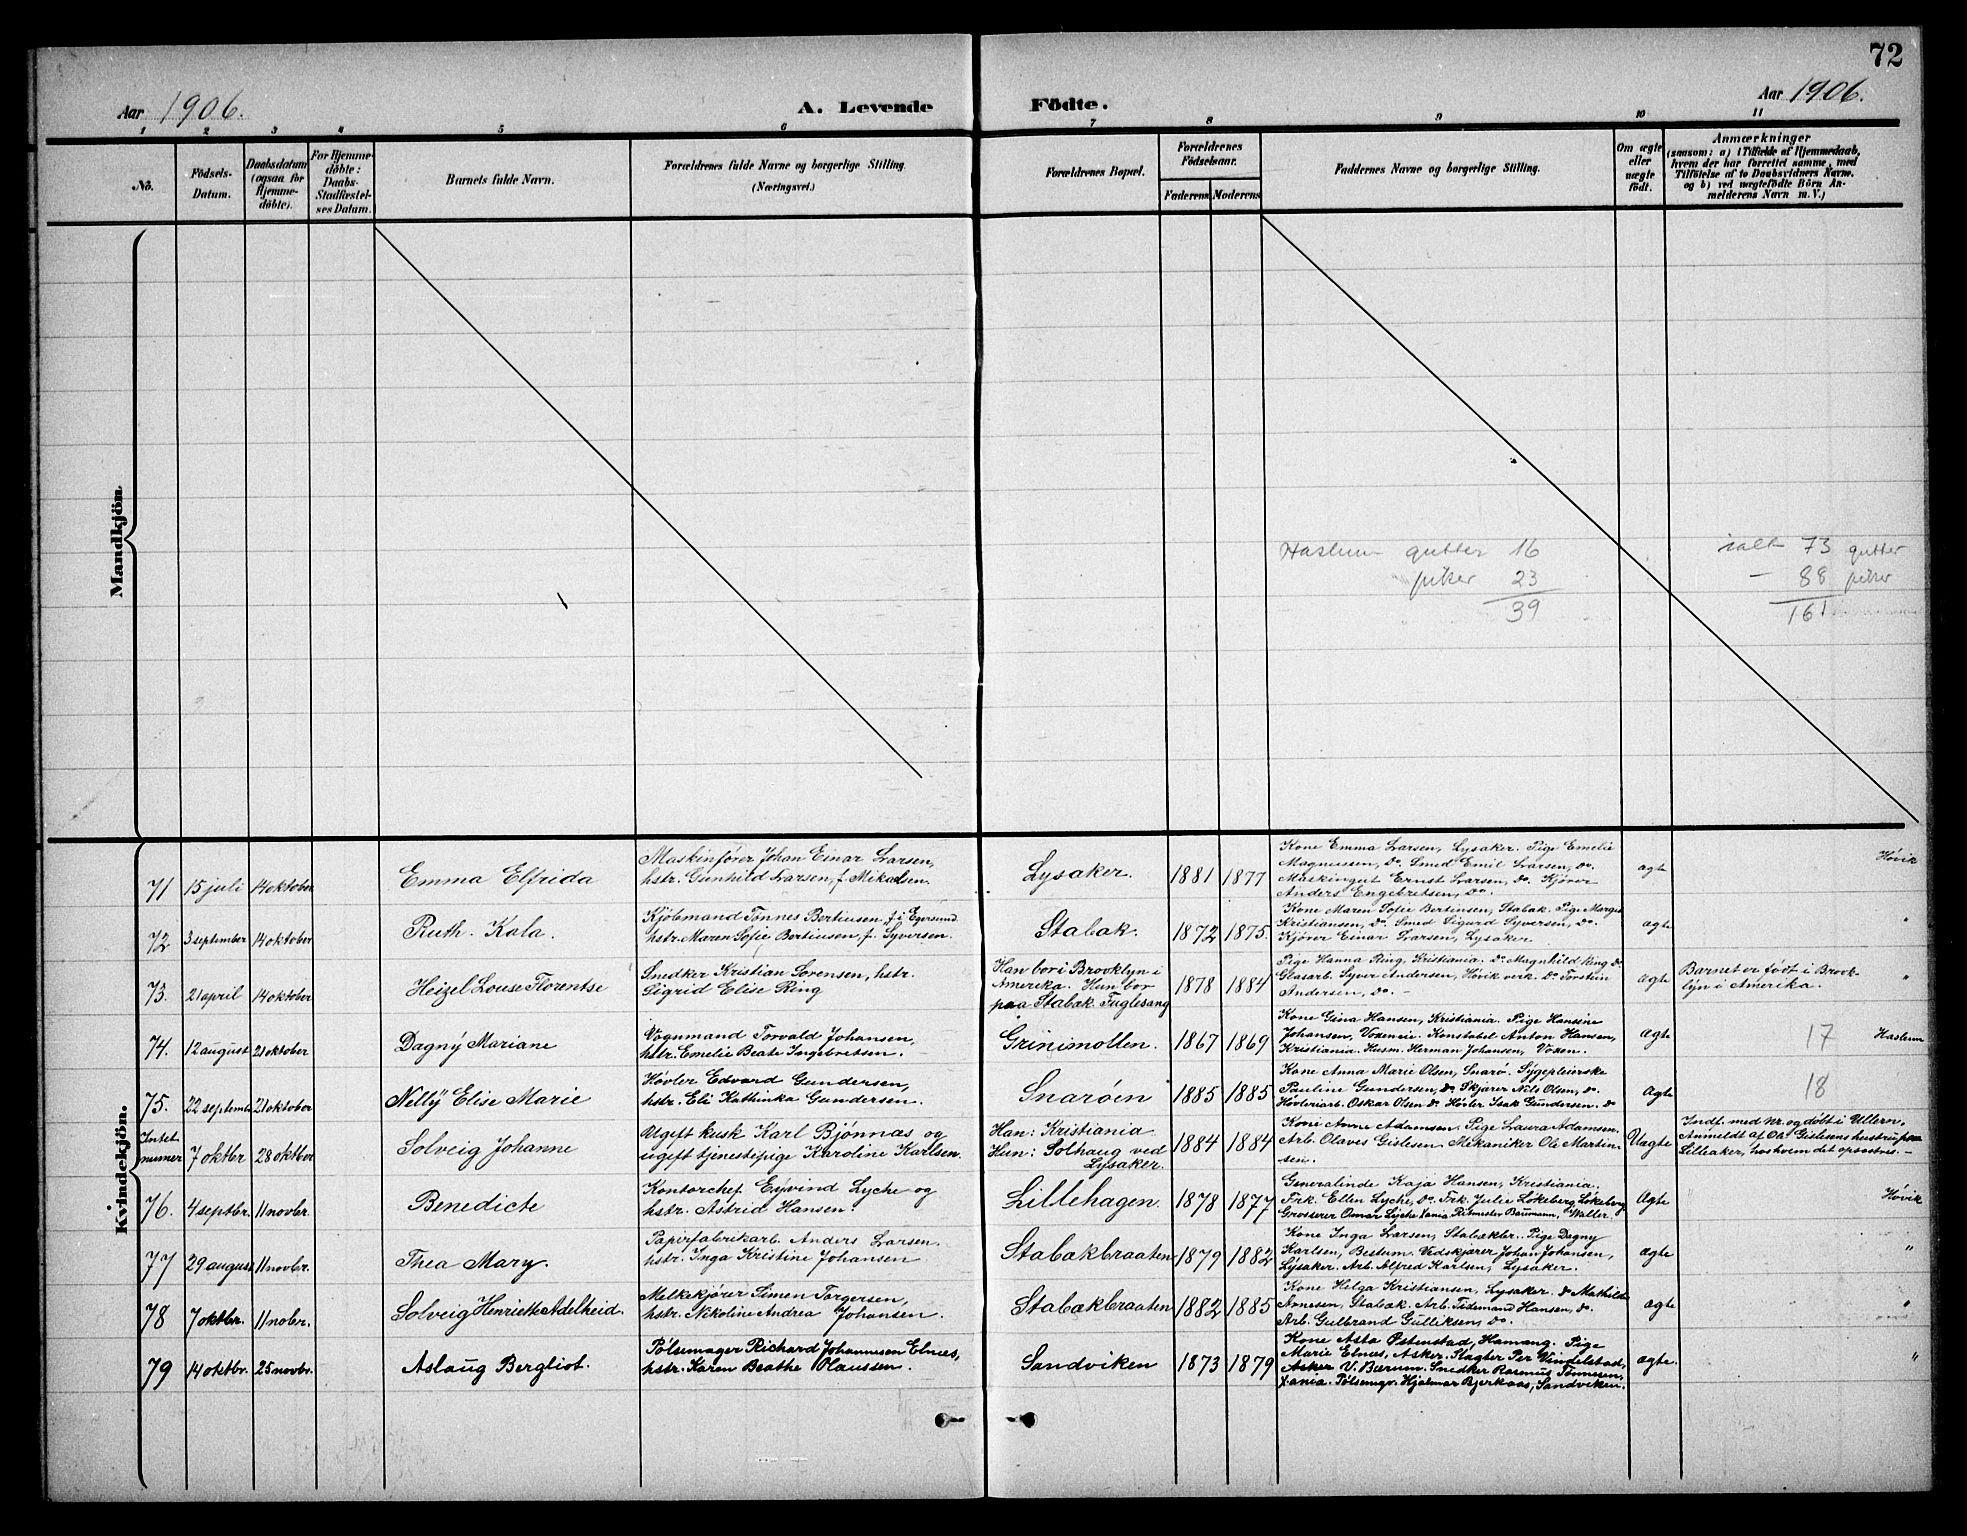 72
Aar 1906.
A. Levende Födte.
Aar 1906.
1 2 3 4 5 6 7 8 9 10 11
No.
Födsels-
Datum.
Daabsdatum
(ogsaa for
Hjemme-
döbte).
For Hjemme-
döbte:
Daabs-
Stadfæstel-
ses Datum.
Barnets fulde Navn.
Forældrenes fulde Navne og borgerlige Stilling.
(Næringsvei.)
Forældrenes Bopæl.
Forældrenes
Födselsaar.
Faderens Moderens
Faddernes Navne og borgerlige Stilling.
Om ægte
eller
uægte
födt.
Anmærkninger
(saasom: a) i Tilfælde af Hjemmedaab,
hvem der har forrettet samme, med
Tilföielse af to Daabsvidners Navne,
og b) ved uægtefödte Börn An-
melderens Navn m. V.)
Mandkjön.
Haslum gutter 16
" piker 23
39
ialt 73 gutter
- 88 piker
161
Kvindekjön.
71 15 juli 14 oktober
Emma Elfrida
Maskinfører Johan Einar Larsen,
hstr. Gunhild Larsen, f. Mikalsen.
Lysaker. 1881 1877
Kone Emma Larsen, Lysaker. Pige Emelie
Magnussen, do. Smed Emil Larsen, do.
Maskingut Ernst Larsen, do. Kjører
Anders Engebretsen, do.
ægte
Høvik
72 3 september 14 oktober
Ruth. Kala.
Kjöbmand Tønnes Bertinsen f. i Egersund
hstr. Maren Sofie Bertinsen f. Syversen.
Stabak. 1872 1875.
Kone Maren Sofie Bertinsen, Stabak. Pige Margit
Kristiansen, do. Smed Sigurd Syversen, do.
Kjører Einar Larsen, Lysaker.
ægte
"
73. 21 april 14 oktober
Heizel Louse Florentse
Snedker Kristian Sørensen, hstr.
Sigrid Elise Ring
Han bor i Brooklyn i
Amerika. Hun bor
paa Stabæk Fuglesang
1878 1884
Pige Hanna Ring, Kristiania. do. Magnhild Ring do.
Glasarb. Syver Andersen, Høvik verk. do. Torstein
Andersen, do. -
ægte
Barnet er født i Brook-
lyn i Amerika.
"
74. 12 august 21 oktober
Dagny Mariane
Vognmand Torvald Johansen,
hstr. Emelie Beate Ingebretsen.
Grinimollen. 1867 1869
Kone Gina Hansen, Kristiania. Pige Hansine
Johansen, Voxeneie. Konstabel Anton Hansen,
Kristiania. Husm. Herman Johansen, Voxen.
ægte
17 Haslum
75. 22 septembr 21 oktober
Nelly Elise Marie
Høvler Edvard Gundersen,
hstr. Eli Kathinka Gundersen.
Snarøen 1885 1885
Kone Anna Marie Olsen, Snarø. Sygepleierske
Pauline Gundersen, do. Skjærer Nils Olsen, do.
Høvleriarb. Oskar Olsen do. Høvler Isak Gundersen. do
ægte
18
Intet
numer
7 oktbr 28 oktbor
Solveig Johanne
Ugift kusk Karl Bjønnæs og
ugift tjenestepige Karoline Karlsen.
Han: Kristiania
Hun: Solhaug ved
Lysaker.
1884 1884
Kone Anne Adamsen. Pige Laura Adamsen.
Arb. Olaves Gislesen. Mekaniker Ole Martin-
sen.
Uægte
Indf. med Nr. og døbt i Ullern.
Anmeldt af Ol. Gislesens hustru paa
Lilleaker, hos hvem det opfostres. -
76. 4 septbr. 11 novbr.
Benedicte
Kontorchef Eyvind Lyche og
hstr. Astrid Hansen.
Lillehagen. 1878 1877
Generalinde Kaja Hansen, Kristiania.
Frk. Ellen Lyche, do. Frk. Julie Løkeberg, Løkeberg
Grosserer Omar Lyche Xania Ritmester Baumann, Waller.
ægte
Høvik
77 29 august 11 novbr.
Thea Mary.
Papirfabrikarb. Anders Larsen.
hstr. Inga Kristine Johansen
Stabækbraaten 1879 1882
Kone Inga Larsen, Stabækbr. Pige Dagny
Karlsen, Bestum. Vedskjærer Johan Johansen,
Lysaker. Arb. Alfred Karlsen, Lysaker.
ægte
"
78 7 oktbr. 11 nobr.
Solveig Henriette Adelheid.
Melkekjører Simen Torgersen,
hstr. Nikoline Andrea Johansen.
Stabækbraaten 1882 1885
Kone Helga Kristiansen, Lysaker. do Mathilde
Arnesen, Stabæk. Arb. Tidemand Hansen, do.
Arb. Gulbrand Gulliksen, do.
ægte
"
79 14 oktbr. 25 novbr.
Aslaug Bergliot.
Pølsemager Richard Johannesen Elnæs,
hstr. Karen Beathe Olaussen.
Sandviken 1873 1879
Kone Asta Østenstad, Hamang. Pige
Marie Elnæs, Asker. Slagter Per Vindelstad,
Asker V. Bærum. Snedker Rasmus Tønnesen,
Xania. Pølsemgr. Hjalmar Bjerkaas, Sandviken.
ægte.
"